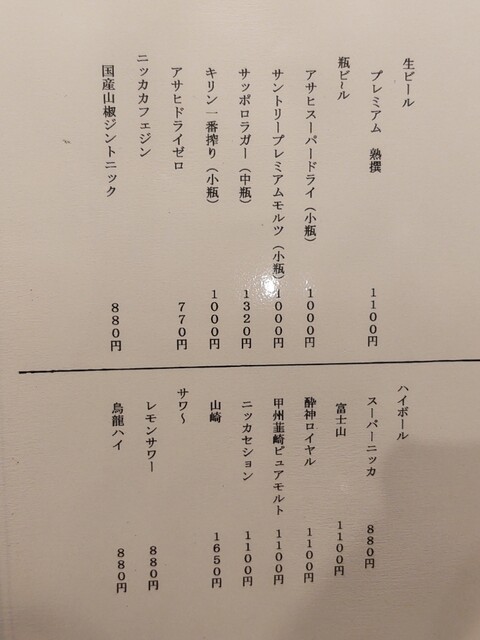 生ビール
プレミアム 熟撰 1100円
瓶ビール
アサヒスーパードライ（小瓶） 1000円
サントリープレミアムモルツ（小瓶） 1000円
サッポロラガー（中瓶） 1320円
キリン一番搾り（小瓶） 1000円
アサヒドライゼロ 770円
ニッカカフェジン
国産山椒ジントニック 880円
ハイボール
スーパーニッカ 880円
富士山 1100円
酔神ロイヤル 1100円
甲州韮崎ピュアモルト 1100円
ニッカセション 1100円
山崎 1650円
サワ～
レモンサワー 880円
烏龍ハイ 880円